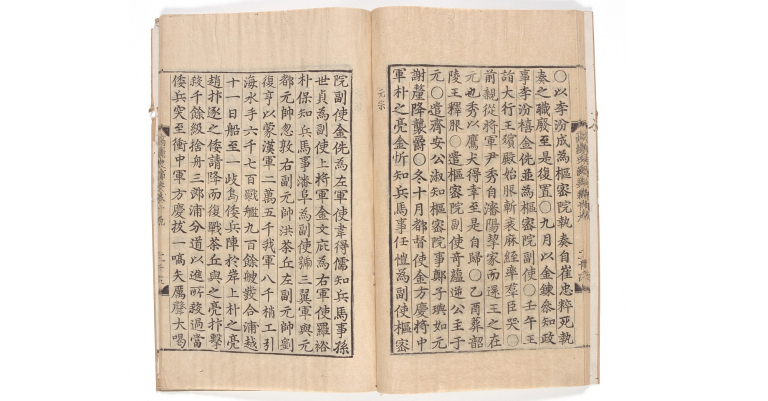 ○以李汾成爲樞密院執奏自崔忠粹死執
奏之職廢至是復置○九月以金鍊參知政
事李汾禧金侁並爲樞密院副使○壬午王
詣大行王殯殿始服斬衰麻絰率羣臣哭○
前親從將軍尹秀自瀋陽挈家而還王之在
元也秀以鷹犬得幸至是自歸○乙酉葬韶
陵王釋服○遣樞密院副使奇蘊逆公主于
元○遣齊安公淑知樞密院事鄭子璵如元
謝釐降襲爵○冬十月都督使金方慶將中
軍朴之亮金忻知兵馬事任愷爲副使樞密
元宗
院副使金侁爲左軍使韋得儒知兵馬事孫
世貞爲副使上將軍金文庇爲右軍使羅裕
朴保知兵馬事潘阜爲副使號三翼軍與元
都元帥忽敦右副元帥洪茶丘左副元帥劉
復亨以蒙漢軍二萬五千我軍八千梢工引
海水手六千七百戰艦九百餘艘發合浦越
十一日船至一岐島倭兵陣於岸上朴之亮
趙抃逐之倭請降而復戰茶丘與之亮抃擊
殺千餘級捨舟三郎浦分道以進所殺過當
倭兵突至衝中軍方慶拔一嗃矢厲聲大喝